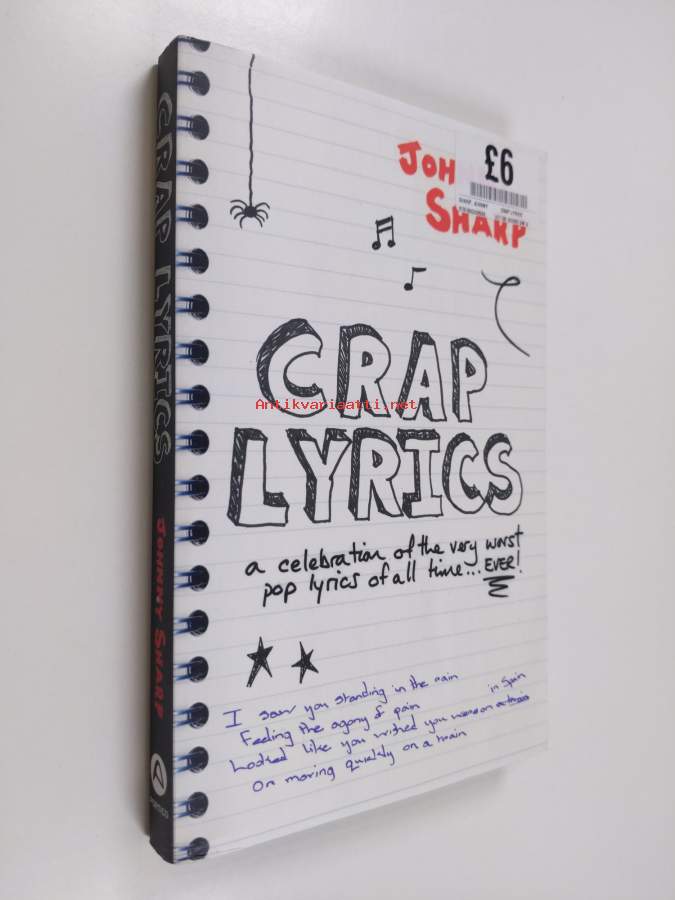 CRAP LYRICS JOHNNY SHARP
JOH
£6
SHARP
CRAP
Antikvariaatti.net
LYRICS
a celebration of the very worst
pop lyrics of all time... EVER!
I saw you standing in the rain
Feeling the agony of pain
in Spain
Looked like you wished you were on a train
Or moving quickly on a train